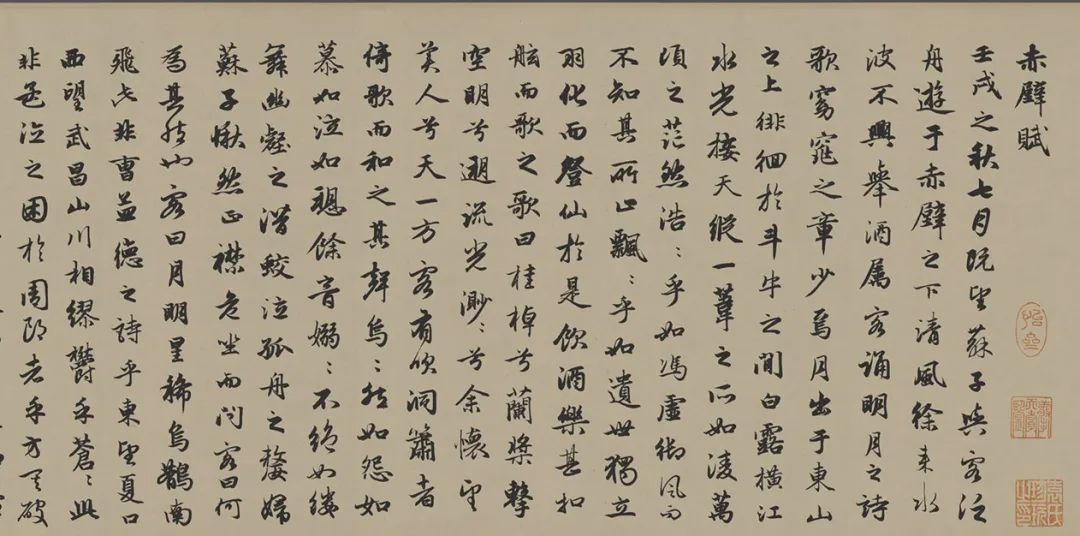 赤壁賦
壬戌之秋七月既望蘇子與客泛
舟遊于赤壁之下清風徐来水
波不興舉酒属客誦明月之詩
歌窈窕之章少焉月出于東山
之上徘徊於斗牛之間白露横江
水光接天縱一葦之所如凌萬
頃之茫然浩〻乎如馮虛御風而
不知其所止飄〻乎如遺世獨立
羽化而登仙於是飲酒樂甚扣
舷而歌之歌曰桂棹兮蘭槳擊
空明兮遡流光渺〻兮余懷望
美人兮天一方客有吹洞簫者
倚歌而和之其聲烏〻然如怨如
慕如泣如愬餘音嫋〻不絶如縷
舞幽壑之潛蛟泣孤舟之嫠婦
蘇子愀然正襟危坐而問客曰何
為其然也客曰月明星稀烏鵲南
飛此非曹孟德之詩乎東望夏口
西望武昌山川相繆鬱乎蒼〻此
非孟德之困於周郎者乎方其破